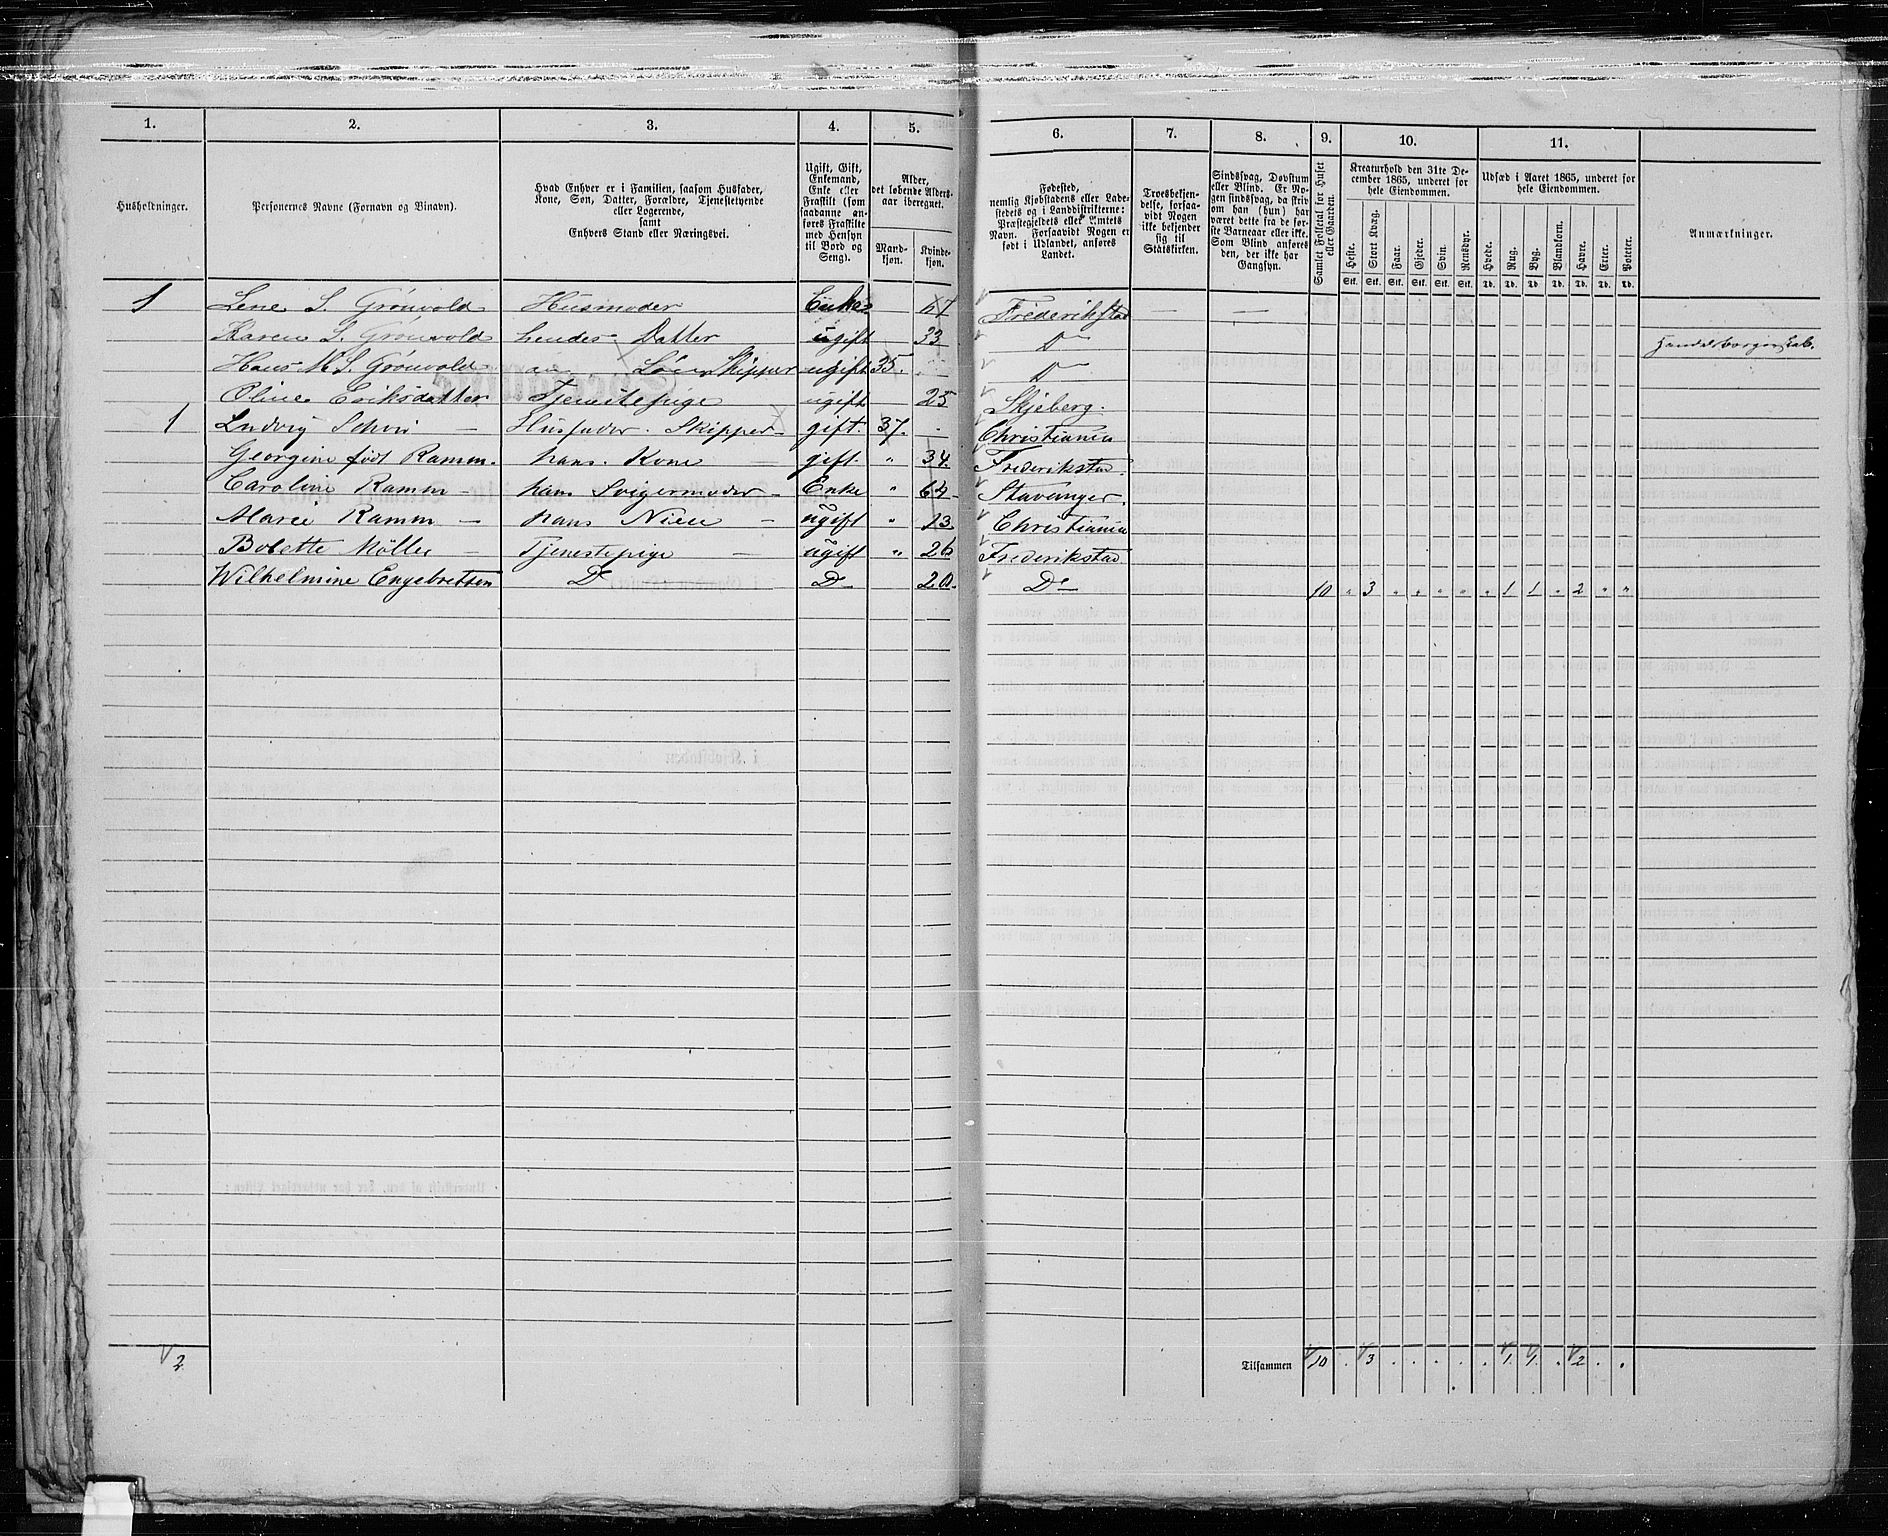 1. 2. 3. 4. 5. 6. 7. 8. 9. 10. 11.
Husholdninger.
Personernes Navne (Fornavn og Binavn).
Hvad Enhver er i Familien, saasom Husfader,
Kone, Søn, Datter, Forældre, Tjenestetyende
eller Logerende,
samt
Enhvers Stand eller Næringsvei.
Ugift, Gift,
Enkemand,
Enke eller
Fraskilt (som
saadanne an-
føres Fraskilte
med Hensyn
til Bord og
Seng).
Alder,
det løbende Alders-
aar iberegnet.
Mand-
kjøn.
Kvinde-
kjøn.
Fødested,
nemlig Kjøbstadens eller Lade-
stedets og i Landdistrikterne:
Præstegjeldets eller Amtets
Navn. Forsaavidt Nogen er
født i Udlandet, anføres
Landet.
Troesbekjen-
delse, forsaa-
vidt Nogen
ikke bekjender
sig til
Statskirken.
Sindssvag, Døvstum
eller Blind. Er No-
gen sindssvag, da skriv
om han (hun) har
været dette fra de før-
ste Barneaar eller ikke.
Som Blind anføres
den, der ikke har
Gangsyn.
Samlet Folketal for Huset
eller Gaarden.
Kreaturhold den 31te De-
cember 1865, underet for
hele Eiendommen.
Heste. Stort Kvæg. Faar. Gjeder. Svin. Rensdyr.
Stk. Stk. Stk. Stk. Stk. Stk.
Udsæd i Aaret 1865, underet for
hele Eiendommen.
Hvede. Rug. Byg. Blandkorn. Havre. Erter. Poteter.
Td. Td. Td. Td. Td. Td. Td.
Anmærkninger.
1 Lene S. Grønvold Husmoder Enke 67 Frederikstad — —
Karen S. Grønvold hendes Datter ugift 33 Do Handelsborgerskab.
Hans M S. Grønvold Søn Skipper ugift 35. Do
Oline Eriksdatter Tjenestepige ugift 25 Skjeberg.
1 Ludvig Schou — Husfader. Skipper — gift. 37. Christiania
Georgine født Ramm. hans. Kone — gift. " 34. Frederikstad.
Caroline Ramm — hans Svigermoder — Enke " 64 — Stavanger.
Marie Ramm — hans Niece — ugift " 13 Christiania
Bolette Møller — Tjenestepige — ugift " 26 Frederikstad.
Wilhelmine Engebretsen Do Do — 20. Do — 10 " 3 " " " " " 1 1 " 2 " "
2 Tilsammen 10 . 3 . . . . . 1. 1. " 2 . .